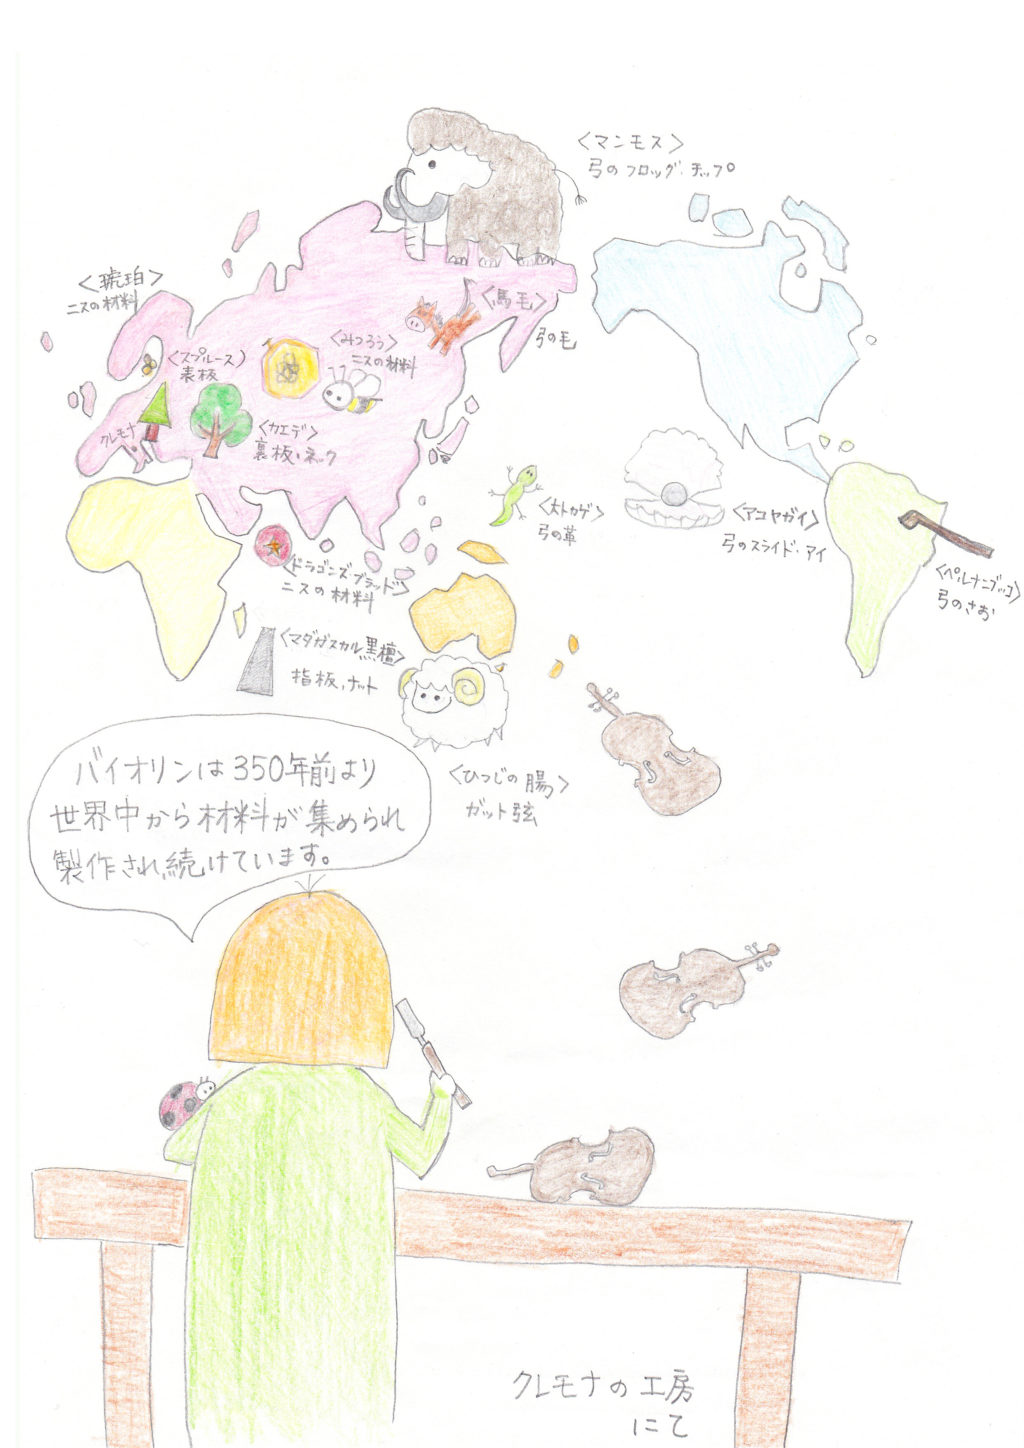 <マンモス>
弓のフロッグ・チップ
<琥珀>
ニスの材料
<馬毛>
弓の毛
<みつろう>
ニスの材料
<スプルース>
表板
クレモナ
<カエデ>
裏板・ネック
<大トカゲ>
弓の革
<アコヤガイ>
弓のスライド・アイ
<ペルナンブッコ>
弓のさお
<ドラゴンズブラッド>
ニスの材料
<マダガスカル黒檀>
指板、ナット
<ひつじの腸>
ガット弦
バイオリンは350年前より
世界中から材料が集められ
製作され続けています。
クレモナの工房
にて